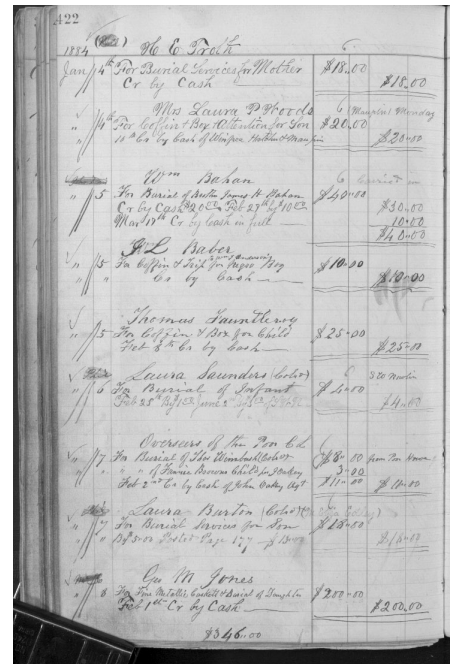 422
1884 H. E. Troth
Jan 4th For Burial Services for Mother $18.00
Cr by Cash $18.00
Mrs Laura P Woods
" 4th For Coffin & Box & Attention for Son $20.00
10th Cr by Cash of $20.00
Wm Bahan
" 5 For Burial of James H. Bahan $40.00
Cr by Cash $30 Feb 27th by 10.00 $30.00
Mar 17th Cr by Cash in full 10.00
$40.00
L Baber
" 5 For Coffin & Trip for Negro Boy $10.00
" Cr by Cash $10.00
Thomas Fauntleroy
" 5 For Coffin & Box for Child $25.00
Feb 8th Cr by Cash $25.00
Laura Saunders (Cold)
" 6 For Burial of Infant $4.00
Feb 25th June 2nd $4.00
Overseers of the Poor C.C.
" 7 For Burial of (Cold) $8.00 from Poor House
" " of Fannie Child for 3.00
Feb 2nd Cr by Cash of John Oakey Agt $11.00
Laura Burton (Cold)
" 7 For Burial Services for Son
By 5.00 Posted Page 177
Geo M Jones
" 8 For Fine Metallic Caskett & Burial of Daughter $200.00
Feb 1st Cr by Cash $200.00
$346.00